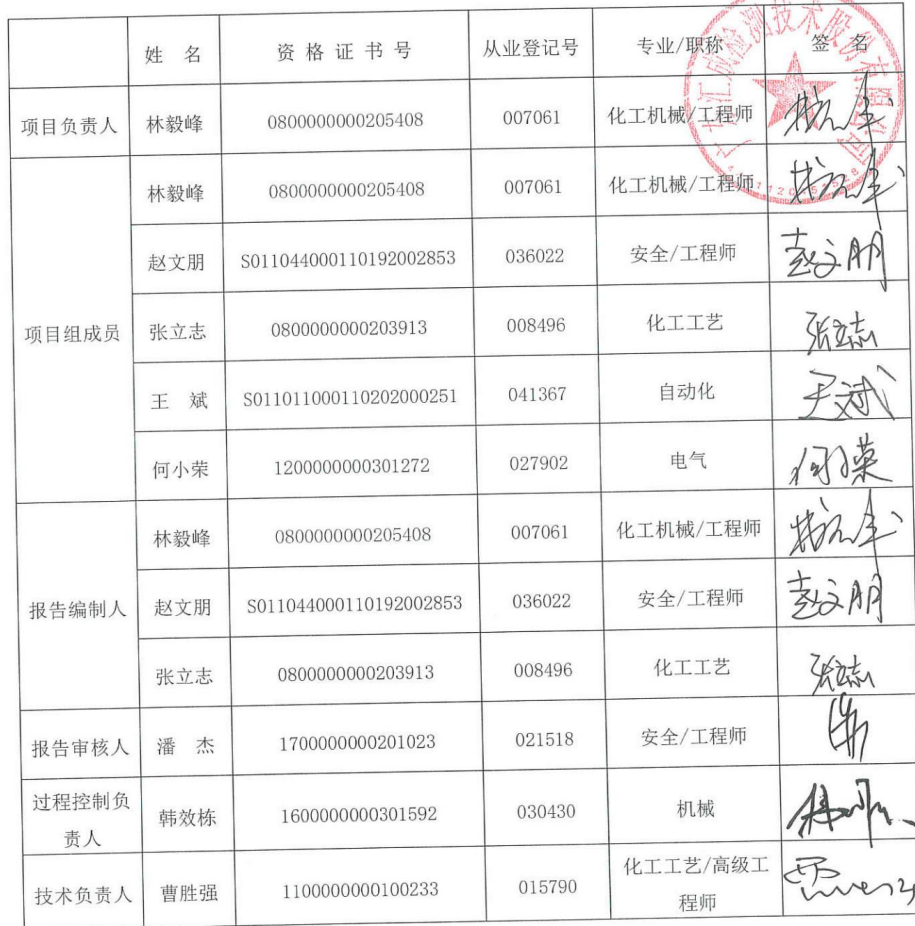 姓 名 资格证书号 从业登记号 专业/职称 签 名
项目负责人 林毅峰 0800000000205408 007061 化工机械/工程师
项目组成员 林毅峰 0800000000205408 007061 化工机械/工程师
赵文朋 S011044000110192002853 036022 安全/工程师 赵文朋
张立志 0800000000203913 008496 化工工艺 张立志
王 斌 S011011000110202000251 041367 自动化 王斌
何小荣 1200000000301272 027902 电气 何小荣
报告编制人 林毅峰 0800000000205408 007061 化工机械/工程师
赵文朋 S011044000110192002853 036022 安全/工程师 赵文朋
张立志 0800000000203913 008496 化工工艺 张立志
报告审核人 潘 杰 1700000000201023 021518 安全/工程师
过程控制负
责人 韩效栋 1600000000301592 030430 机械
技术负责人 曹胜强 1100000000100233 015790 化工工艺/高级工
程师